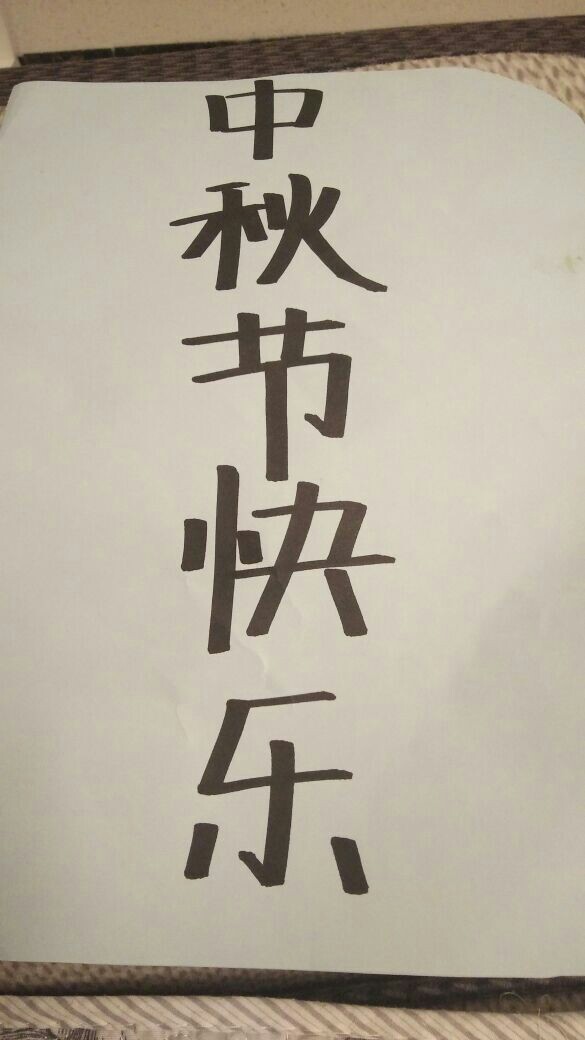 中秋节快乐